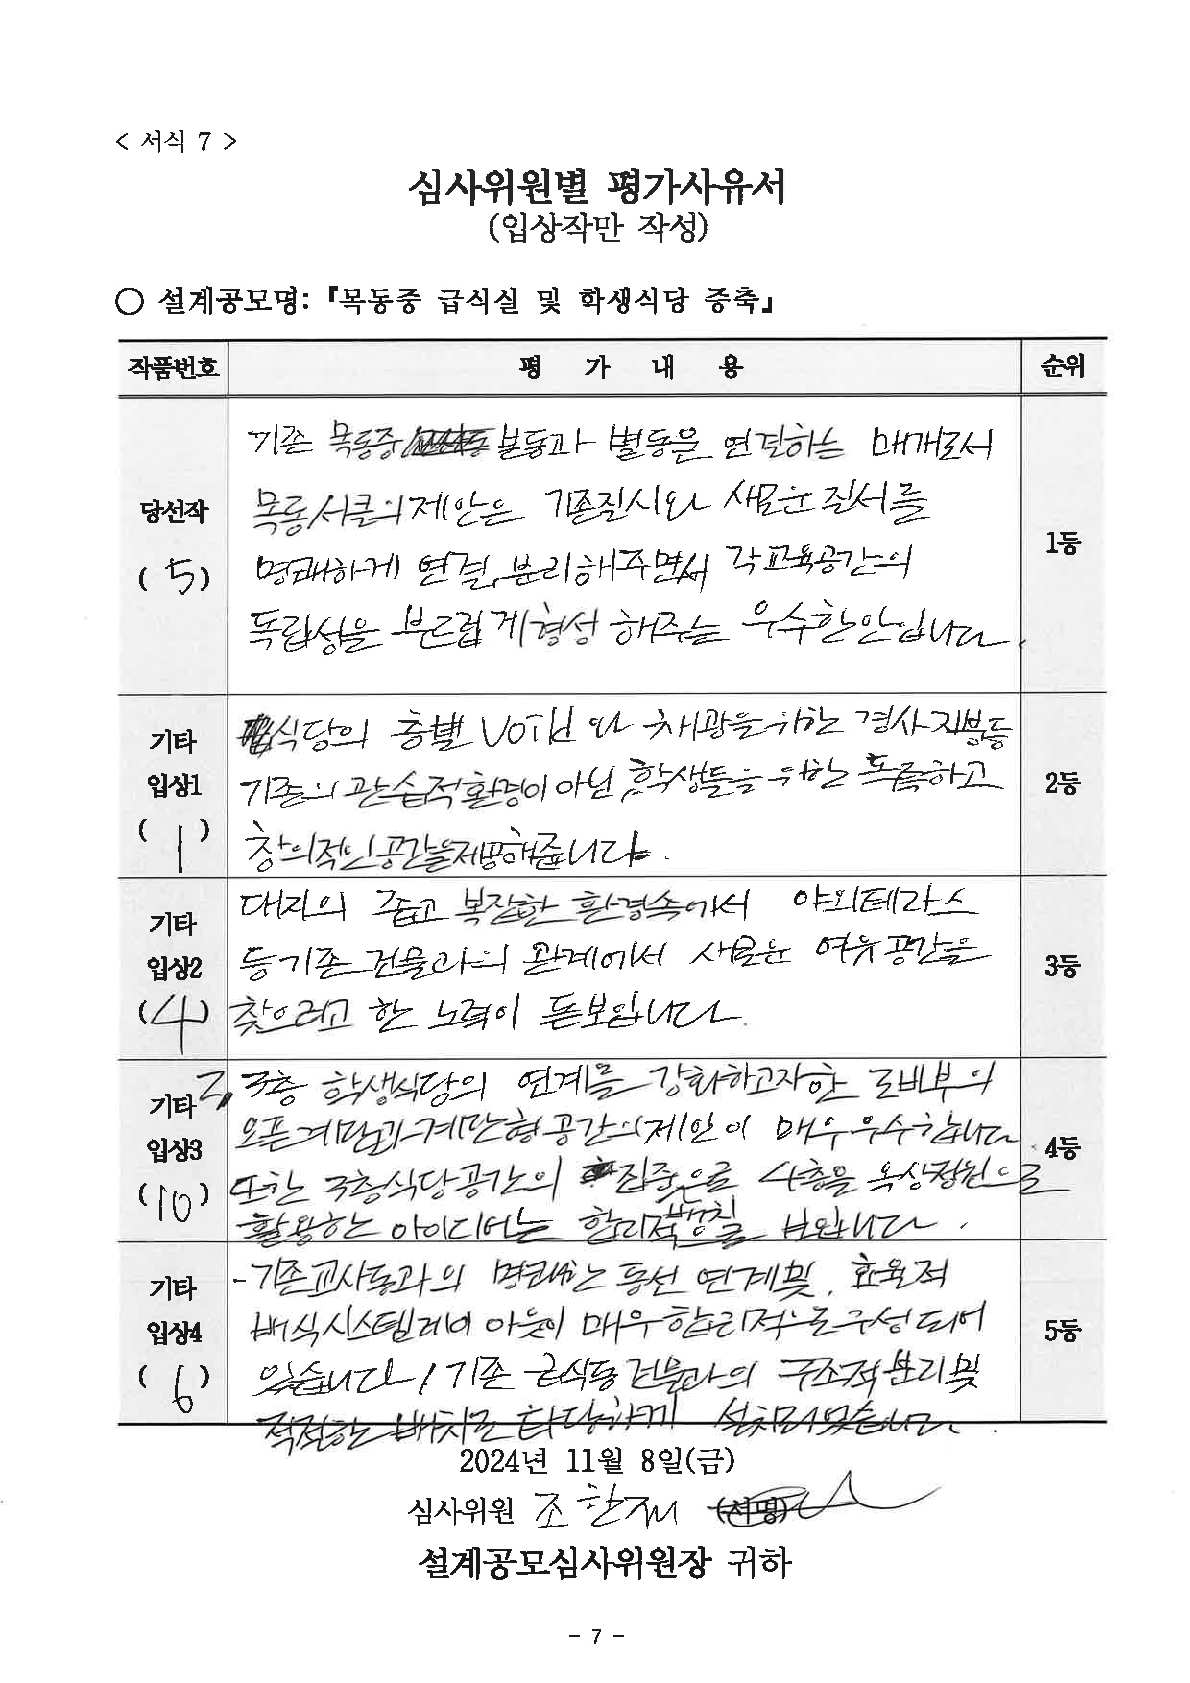 < 서식 7 >
심사위원별 평가사유서
(입상작만 작성)
○ 설계공모명: 『목동중 급식실 및 학생식당 증축』
작품번호 평 가 내 용 순위
당선작
( 5 )
기존 목동중 본동과 별동을 연결하는 매개로서
목동서클의 제안은 기존질서와 새로운 질서를
명쾌하게 연결, 분리해주면서 각교육공간의
독립성을 부드럽게 형성 해주는 우수한안입니다.
1등
기타
입상1
( 1 )
식당의 층별 VOID 와 채광을 위한 경사지붕등
기존의 관습적환경이 아닌, 학생들을 위한 독특하고
창의적인 공간을 제공해줍니다.
2등
기타
입상2
( 4 )
대지의 좁고 복잡한 환경속에서 야외테라스
등 기존 건물과의 관계에서 새로운 여유공간을
찾으려고 한 노력이 돋보입니다.
3등
기타
입상3
( 10 )
2, 3층 학생식당의 연계를 강화하고자한 로비부의
오픈계단과 계단형공간의 제안이 매우 우수합니다
또한 3층식당공간의 집중으로 4층을 옥상정원으로
활용하는 아이디어는 합리적 보입니다.
4등
기타
입상4
( 6 )
- 기존교사동과의 명쾌한 동선 연계및, 효율적
배식시스템 레이아웃이 매우합리적으로 구성되어
있습니다 / 기존 급식동 건물과의 구조적 분리및
적절한 배치로 타당하게 설치되었습니다.
5등
2024년 11월 8일(금)
심사위원 조한재 (서명)
설계공모심사위원장 귀하
- 7 -